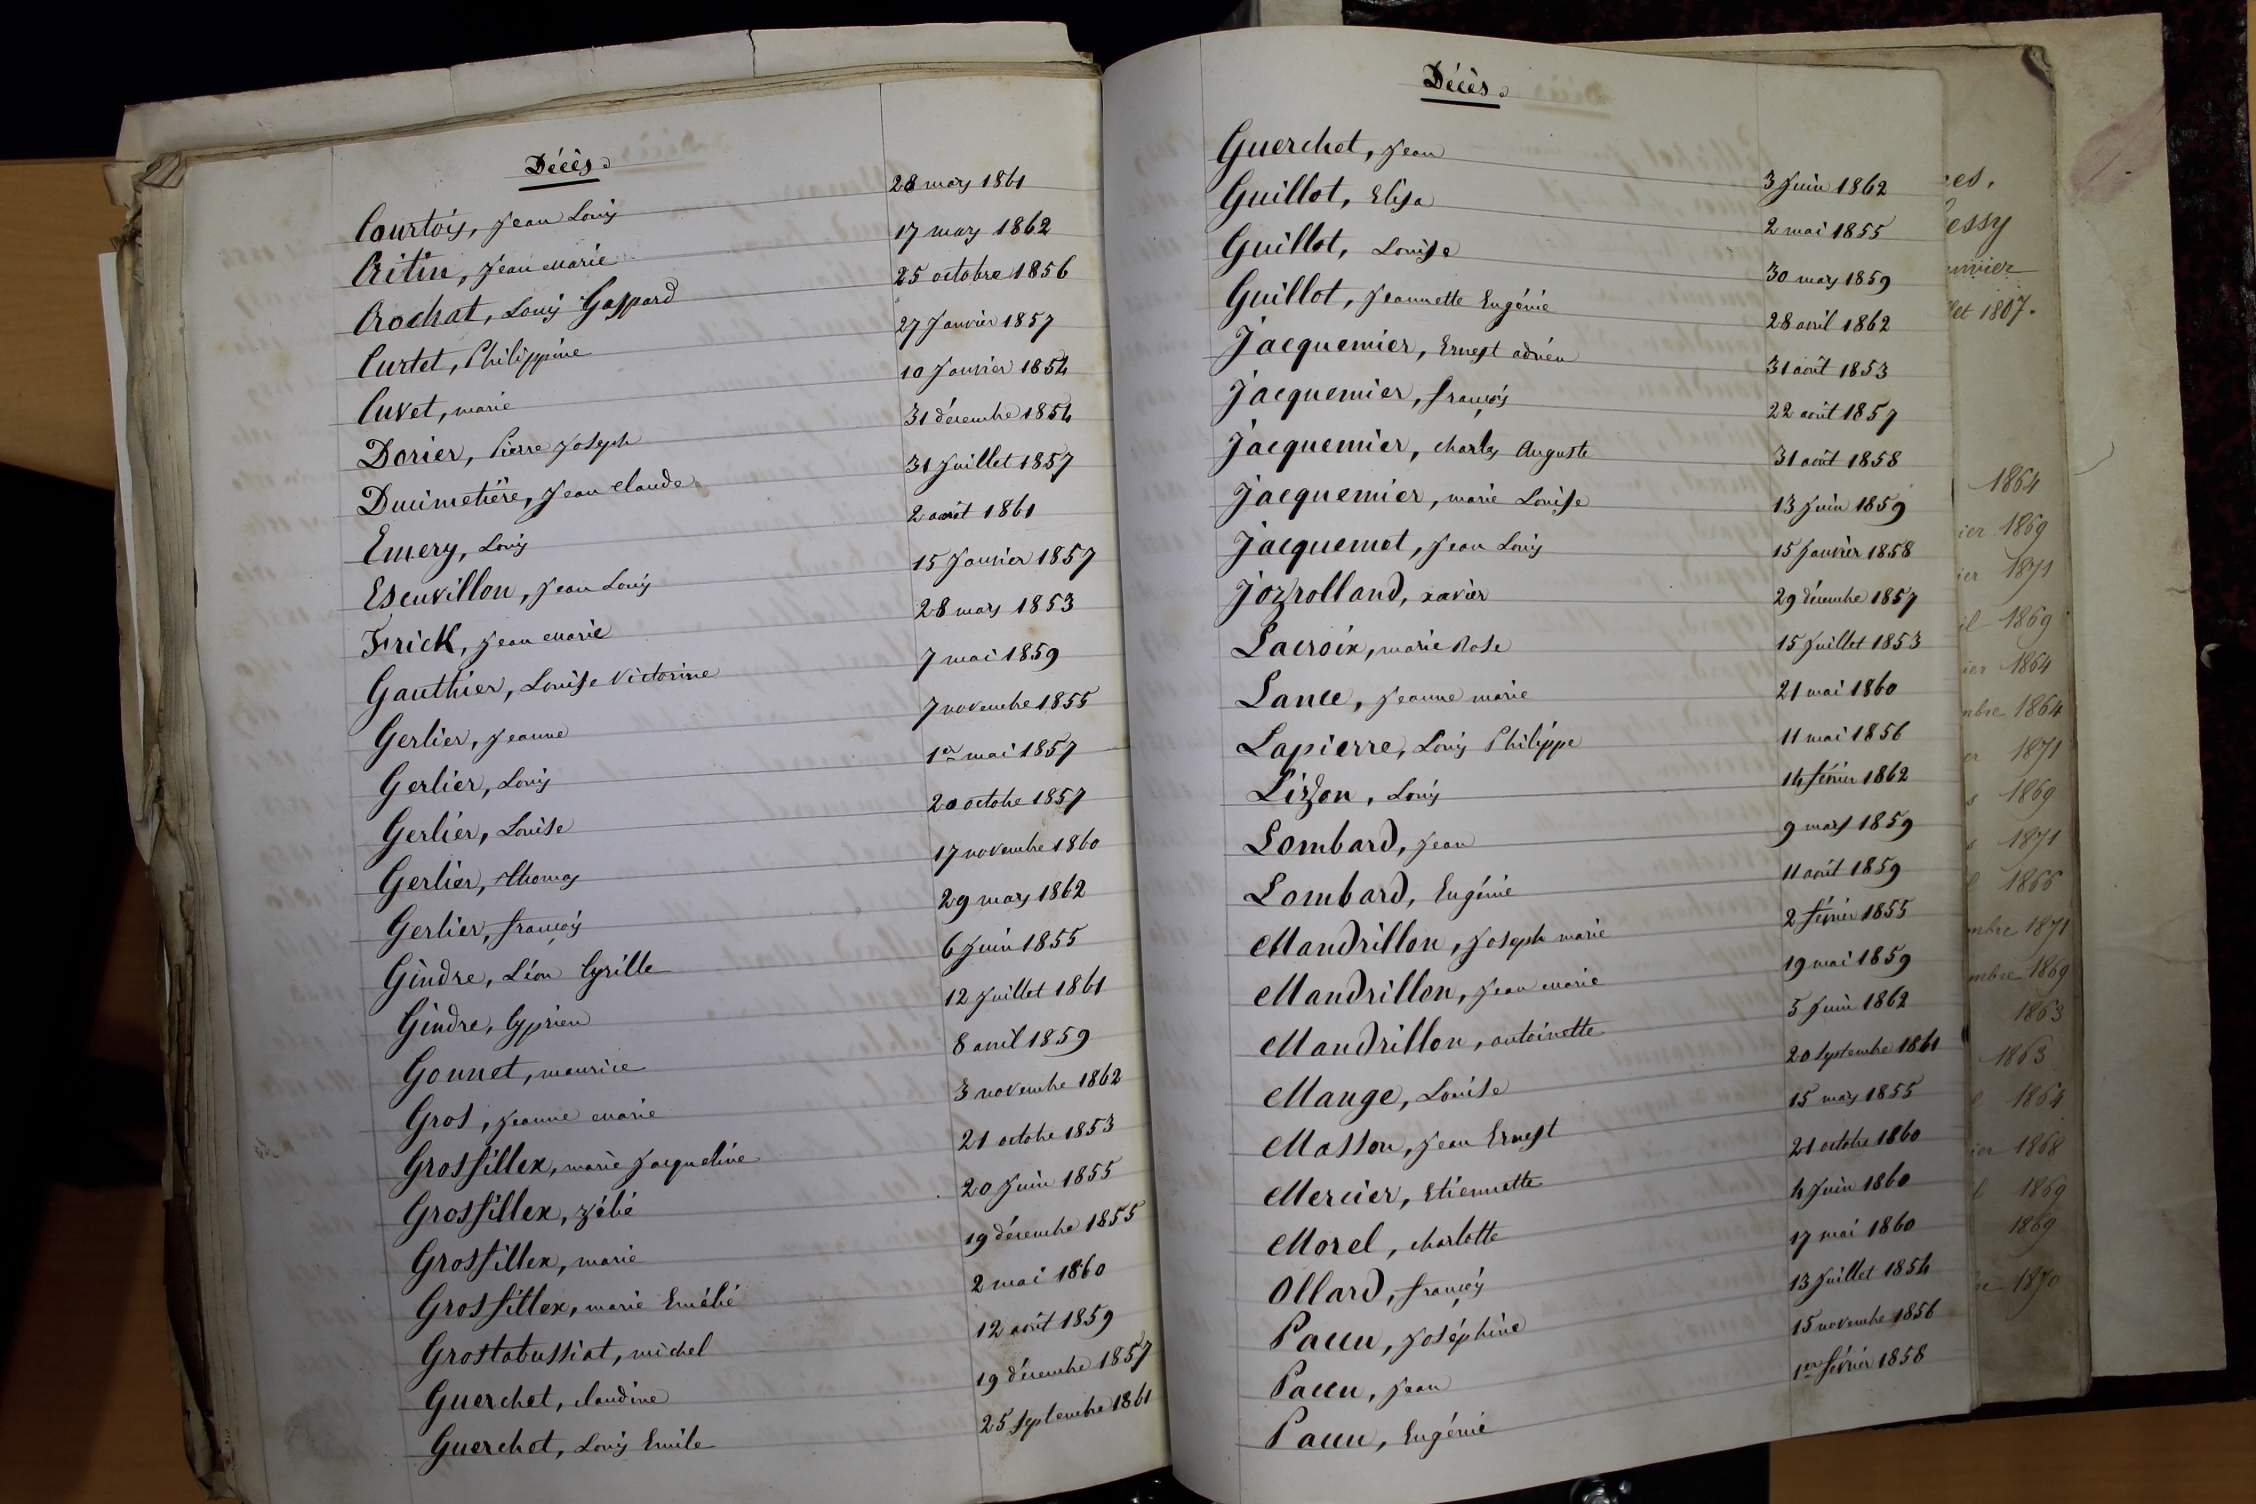 Décès.
Courtois, Jean Louis 28 mars 1861
Critin, Jean Marie 17 mars 1862
Crochat, Louis Gaspard 25 octobre 1856
Curtet, Philippine 27 Janvier 1857
Cuvet, marie 10 Janvier 1854
Dorier, Pierre Joseph 31 décembre 1854
Ducimetière, Jean claude 31 Juillet 1857
Emery, Louis 2 août 1861
Escuvillon, Jean Louis 15 Janvier 1857
Frick, Jean Marie 28 mars 1853
Gauthier, Louise Victorine 7 mai 1859
Gerlier, Jeanne 7 novembre 1855
Gerlier, Louis 1er mai 1857
Gerlier, Louise 20 octobre 1857
Gerlier, Thomas 17 novembre 1860
Gerlier, françois 29 mars 1862
Gindre, Léon Cyrille 6 Juin 1855
Gindre, Cyprien 12 Juillet 1861
Gonnet, maurice 8 avril 1859
Gros, Jeanne Marie 3 novembre 1862
Grosfillex, marie Jacqueline 21 octobre 1853
Grosfillex, zélie 20 Juin 1855
Grosfillex, marie 19 décembre 1855
Grosfillex, marie Emélie 2 mai 1860
Grostabussiat, michel 12 août 1859
Guerchet, claudine 19 décembre 1857
Guerchet, Louis Emile 25 Septembre 1861
Décès.
Guerchet, Jean 3 Juin 1862
Guillot, Elisa 2 mai 1855
Guillot, Louise 30 mars 1859
Guillot, Jeannette Eugénie 28 avril 1862
Jacquemier, Ernest adrien 31 août 1853
Jacquemier, françois 22 août 1857
Jacquemier, charles Auguste 31 août 1858
Jacquemier, marie Louise 13 Juin 1859
Jacquemet, Jean Louis 15 Janvier 1858
Jozrolland, xavier 29 décembre 1857
Lacroix, marie Rose 15 Juillet 1853
Lance, Jeanne marie 21 mai 1860
Lapierre, Louis Philippe 11 mai 1856
Lizon, Louis 14 février 1862
Lombard, Jean 9 mars 1859
Lombard, Eugénie 11 août 1859
Mandrillon, Joseph marie 2 février 1855
Mandrillon, Jean Marie 19 mai 1859
Mandrillon, antoinette 5 Juin 1862
Mange, Louise 20 Septembre 1861
Masson, Jean Ernest 15 mars 1855
Mercier, Etiennette 21 octobre 1860
Morel, charlotte 4 Juin 1860
Ollard, françois 17 mai 1860
Paccu, Joséphine 13 Juillet 1854
Paccu, Jean 15 novembre 1856
Paccu, Eugénie 1er février 1858
es.
essy
let 1807.
1864
ier 1869
ier 1871
il 1869
ier 1864
mbre 1864
er 1871
s 1869
s 1871
1866
mbre 1871
mbre 1869
1863
1863
1864
ier 1868
l 1869
1869
1870